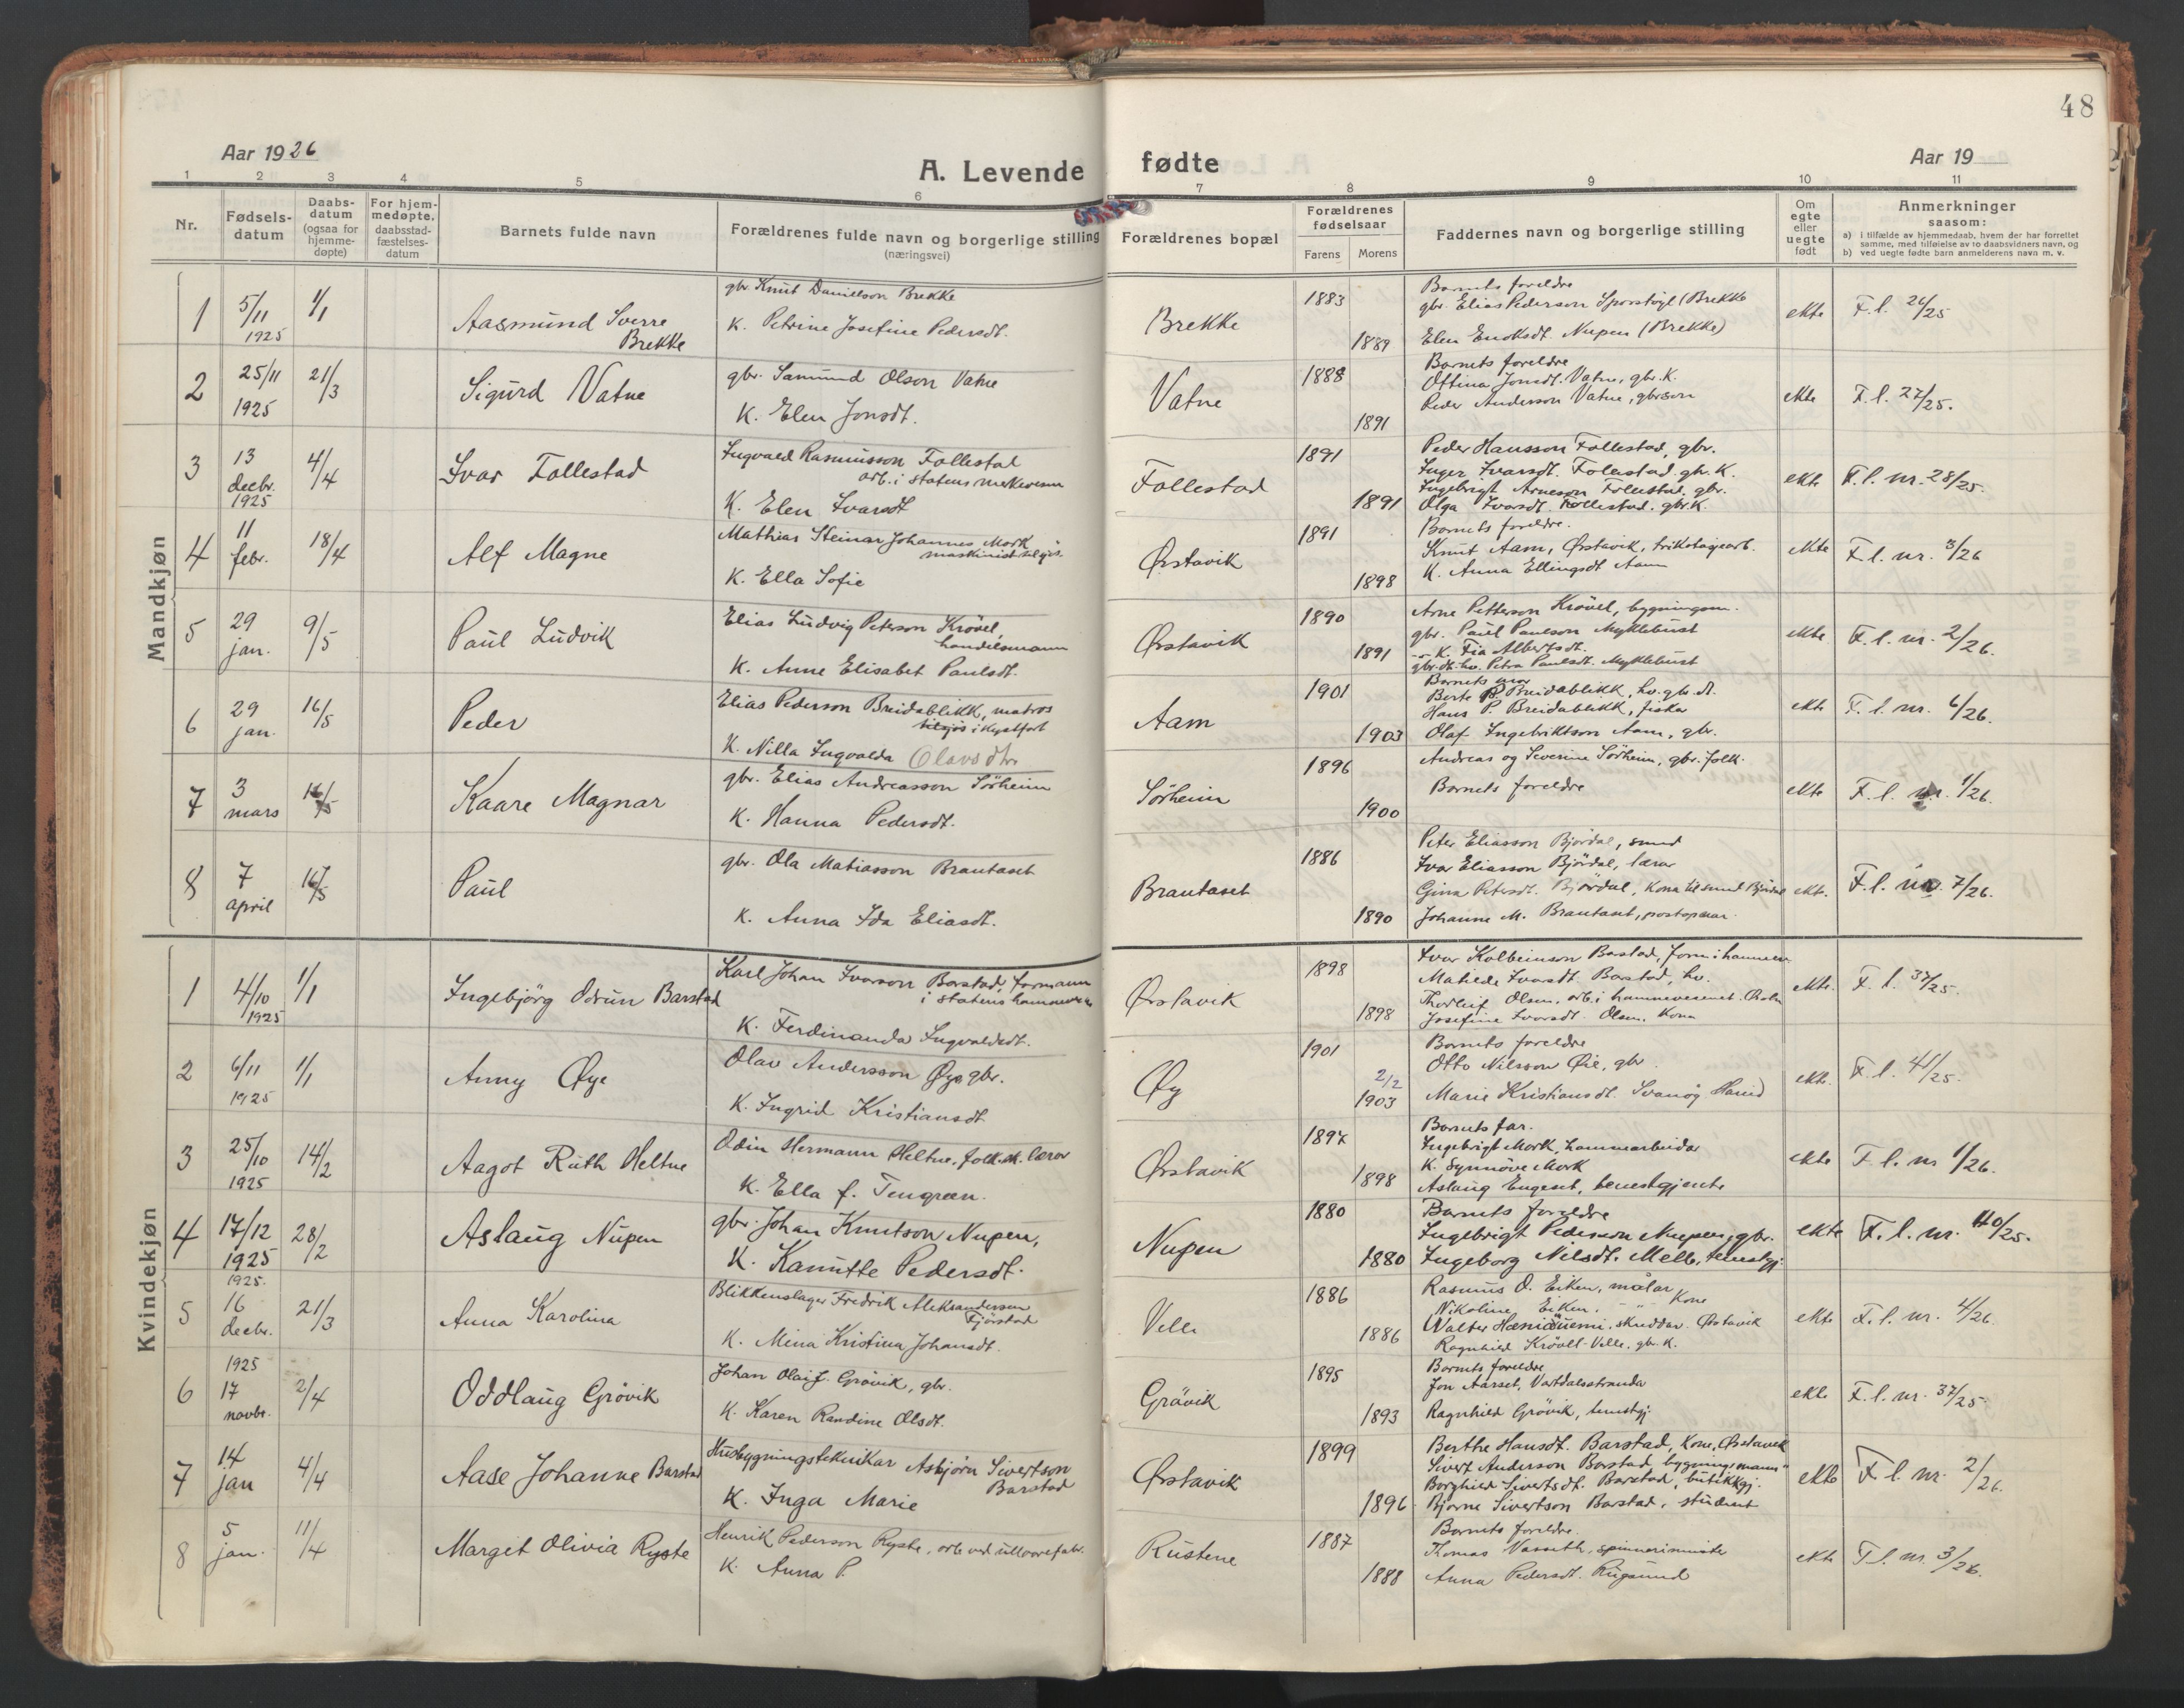 48
Aar 1926
A. Levende fødte
Aar 19
1 2 3 4 5 6 7 8 9 10 11
Nr.
Fødsels-
datum
Daabs-
datum
(ogsaa for
hjemme-
døpte)
For hjem-
medøpte,
daabsstad-
fæstelses-
datum
Barnets fulde navn
Forældrenes fulde navn og borgerlige stilling
(næringsvei)
Forældrenes bopæl
Forældrenes
fødselsaar
Farens Morens
Faddernes navn og borgerlige stilling
Om
egte
eller
uegte
født
Anmerkninger
saasom:
a) i tilfælde av hjemmedaab, hvem der har forrettet
samme, med tilføielse av to daabsvidners navn, og
b) ved uegte fødte barn anmelderens navn m. v.
Mandkjøn
1 5/11 1925 1/1 Aasmund Sverre Brekke
gbr. Knut Danielson Brekke
K. Petrine Josefine Pedersdt.
Brekke 1883 1889
Barnets foreldre
gbr. Elias Pederson Sporstøyl (Brekke
Elen Enoksdt. Nupen (Brekke)
ekte F. l. 26/25
2 25/11 1925 21/3 Sigurd Vatne
gbr. Samund Olson Vatne
K. Elen Jonsdt.
Vatne 1888 1891
Barnets foreldre
Ottina Jonsdt. Vatne, gbr. K.
Peder Anderson Vatne, gbrson
ekte F. l. 27/25.
3 13 decbr. 1925 4/4 Ivar Follestad
Ingvald Rasmusson Follestad
arb. i statens merkevesen
K. Elen Ivarsdt
Follestad 1891 1891
Peder Hansson Follestad, gbr.
Inger Ivarsdt. Follestad. gbr. K.
Ingebrigt Arneson Follestad. gbr.
Olga Ivarsdt. Follestad. gbr. K.
ekte F. l. nr. 28/25.
4 11 febr. 18/4 Alf Magne
Mathias Steinar Johannes Mork
maskinist tilsjøs.
K. Ella Sofie
Ørstavik 1891 1898
Barnets foreldre.
Knut Aam, Ørstavik, trikotagearb.
K. Anna Ellingsdt Aam
ekte F. l. nr. 3/26
5 29 jan. 9/5 Paul Ludvik
Elias Ludvig Peterson Krövel,
handelsmann
K. Anne Elisabet Paulsdt.
Ørstavik 1890 1891
Arne Petterson Krövel, bygningsm.
gbr. Paul Paulson Myklebust
-"- K. Fia Albertsdt.
gbr. dt. hv. Petra Paulsdt. Myklebust
ekte F. l. nr. 2/26.
6 29 jan. 16/5 Peder
Elias Pederson Breidablikk, matros
tilsjøs i Kystfart
K. Nilla Ingvalda Olavsdtr.
Aam 1901 1903
Barnets mor
Berte P. Breidablikk, hv. gbr. dt.
Hans P. Breidablikk, fiskar
Olaf Ingebriktson Aam, gbr.
ekte F. l. nr. 6/26.
7 3 mars 16/5 Kaare Magnar
gbr. Elias Andreasson Sörheim
K. Hanna Pedersdt.
Sörheim 1896 1900
Andreas og Severine Sörheim, gbr. folk.
Barnets foreldre
ekte F. l. nr. 1/26.
8 7 april 16/5 Paul
gbr. Ola Matiasson Brautaset
K. Anna Ida Eliasdt.
Brautaset 1886 1890
Peter Eliasson Björdal, smed
Ivar Eliasson Björdal, lærar
Gina Petersdt. Björdal, Kona til smed Björdal
Johanne M. Brautaset, postopnar.
ekte. F. l. nr. 7/26.
Kvindekjøn
1 4/10 1925 1/1 Ingebjörg Odrun Barstad
Karl Johan Ivarson Barstad, formann
i statens hamnevesen
K. Ferdinanda Ingvaldsdt.
Ørstavik 1898 1898
Ivar Kolbeinson Barstad, form i hamnev.
Matilde Ivarsdt. Barstad, hv.
Thorleif Olsen, arb. i hamnevesenet.
Josefine Ivarsdt. Olsen, Kona
ekte. F. l. 37/25.
2 6/11 1925 1/1 Anny Øye
Olav Andersson Øye, gbr.
K. Ingrid Kristiansdt
Øy 1901 2/2 1903
Barnets foreldre
Otto Nilsson Øie, gbr.
Marie Kristiansdt. Svanøg Hareid
ekte. F. l. 41/25.
3 25/10 1925 14/2 Aagot Ruth Heltne
Odin Hermann Heltne, folk.sk. lærar
K. Ella f. Tengren.
Ørstavik 1897 1898
Barnets far.
Ingebrigt Mork, hamnarbeidar
K. Synnöve Mork
Aslaug Engeset, tenestgjente
ekte F. l. nr 1/26.
4 17/12 1925 28/2 Aslaug Nupen
gbr. Johan Knutson Nupen,
K. Kanutte Pedersdt.
Nupen 1880 1880
Barnets foreldre
Ingebrigt Pederson Nupen, gbr.
Ingeborg Nilsdt. Melle, tenestgj.
ekte F. l. nr. 40/25.
5 1925. 16 decbr. 21/3 Anna Karolina
Blikkenslager Fredrik Aleksandersen
Fjørstad
K. Mina Kristina Johansdt.
Velle 1886 1886
Rasmus O. Eiken, målar
Nikoline Eiken. -"- Kone
Walter Hæniduemi, skreddar. Ørstavik
Ragnhild Krövell-Velle, gbr. K.
ekte F. l. nr. 4/26.
6 1925 17 novbr. 2/4 Oddlaug Grövik
Johan Olai J. Grövik, gbr.
K. Karen Randine Olsdt.
Grövik 1895 1893
Barnets foreldre
Jon Aarset, Vartdalsstranda
Ragnhild Grövik, tenestgj.
ekte F. l. nr. 37/25.
7 14 jan 4/4 Aase Johanne Barstad
Husbygningstekniker Asbjørn Sivertson
Barstad
K. Inga Marie
Ørstavik 1899 1896
Berthe Hansdt. Barstad, Kone, Ørstavik
Sivert Anderson Barstad, bygningsmann "
Borghild Sivertsdt. Barstad, butikkgj.
Bjarne Sivertson Barstad, student
ekte F. l. nr. 2/26.
8 5 jan. 11/4 Margit Olivia Ryste
Henrik Pederson Ryste, arb. ved ullvarefabr.
K. Anna P.
Rustene 1887 1888
Barnets foreldre.
Thomas Vasseth, spinnerimester
Anna Pedersdt. Rugsund
ekte F l. nr. 3/26.